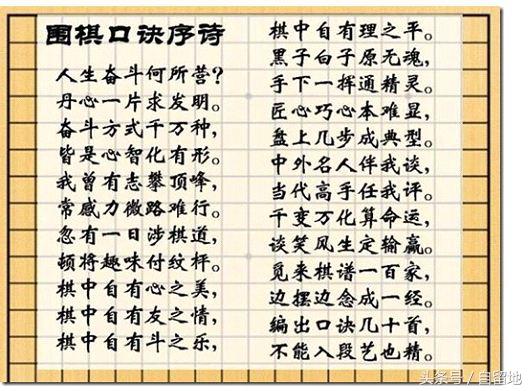 围棋口诀序诗
人生奋斗何所营?
丹心一片求发明。
奋斗方式千万种,
皆是心智化有形。
我曾有志攀顶峰,
常感力微路难行。
忽有一日涉棋道,
顿将趣味付纹枰。
棋中自有心之美,
棋中自有友之情,
棋中自有斗之乐,
棋中自有理之平。
黑子白子原无魂,
手下一挥通精灵。
匠心巧心本难显,
盘上几步成典型。
中外名人伴我谈,
当代高手任我评。
千变万化算命运,
谈笑风生定输赢。
觅来棋谱一百家,
边摆边念成一经。
编出口诀几十首,
不能入段艺也精。
头条号/自留地